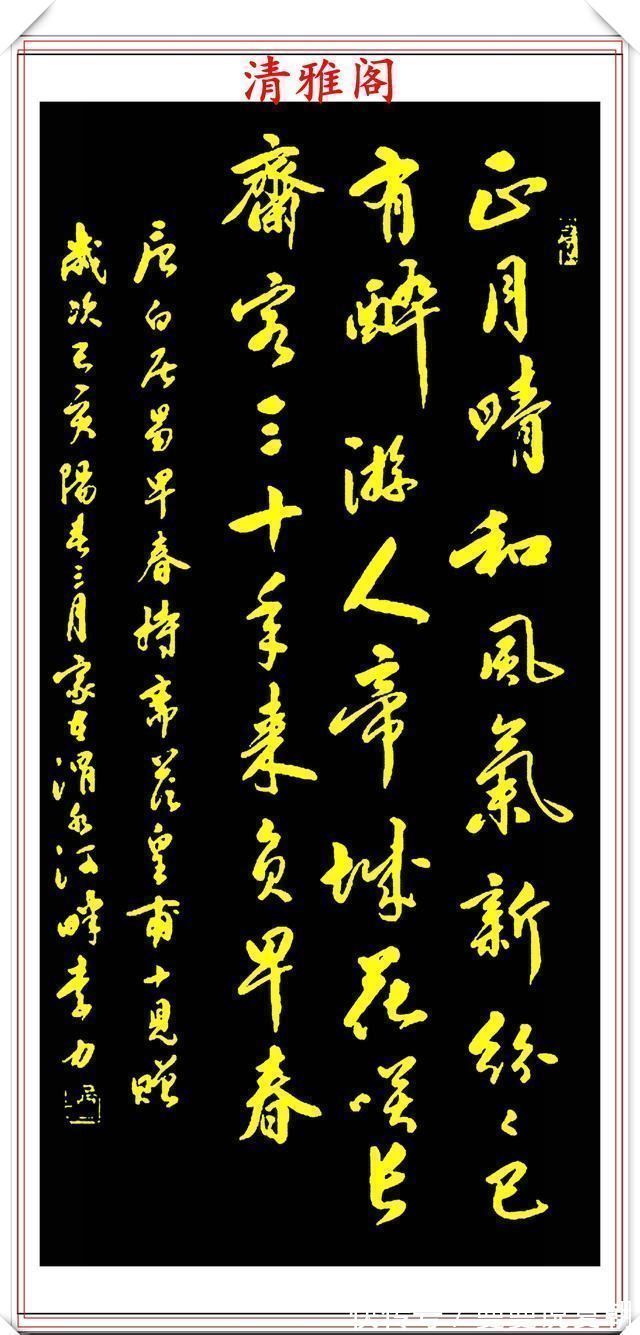 清雅阁
正月晴和風氣新紛々已
有醉游人帝城花咲長
齋客三十年来負早春
唐白居易早春持齋答皇甫十見贈
歲次己亥陽春三月家在渭水河畔李力